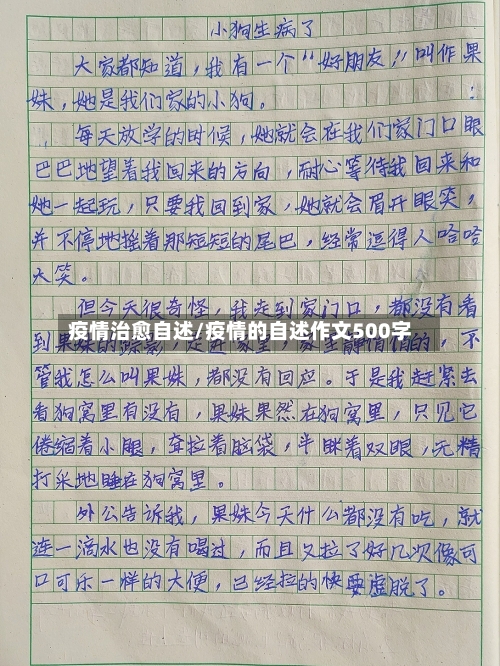 小狗生病了
大家都知道，我有一个“好朋友”叫作果
妹，她是我们家的小狗。
每天放学的时候，她就会在我们家门口眼
巴巴地望着我回来的方向，耐心等待我回来和
她一起玩，只要我回到家，她就会眉开眼笑，
并不停地摇着那短短的尾巴，经常逗得人哈哈
大笑。
但今天很奇怪，我走到家门口，都没有看
疫情治愈自述/疫情的自述作文500字
到果妹的踪影，走进家里，家里静悄悄的，不
管我怎么叫果妹，都没有回应。于是我赶紧去
看狗窝里有没有，果妹果然在狗窝里，只见它
倦缩着小腿，耷拉着脑袋，半眯着双眼，无精
打采地睡在狗窝里。
外公告诉我，果妹今天什么都没有吃，就
连一滴水也没有喝过，而且又拉了好几次像可
口可乐一样的大便，已经拉的快要虚脱了。